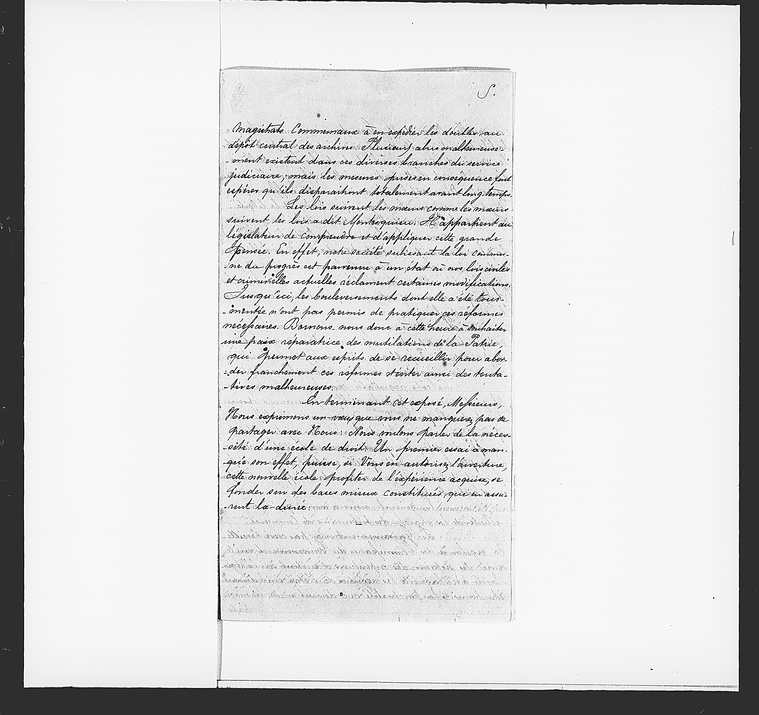 5.
Magistrats Communaux à en expédier les doubles au
dépôt central des archives. Plusieurs abus malheureuse-
-ment existent dans ces diverses branches du service
judiciaire; mais les mesures prises en conséquence font
espérer qu'ils disparaîtront totalement avant longtemps.
Les lois suivent les mœurs comme les mœurs
suivent les lois a dit Montesquieu. Il appartient au
législateur de comprendre et d'appliquer cette grande
pensée. En effet, notre société subissant la loi commu-
-ne du progrès est parvenue à un état où nos lois civiles
et criminelles actuelles réclament certaines modifications.
Jusqu'ici, les bouleversements dont elle a été tour-
-mentée n'ont pas permis de pratiquer ces réformes
nécessaires. Bornons-nous donc à cette heure à souhaiter
une paix réparatrice des mutilations de la Patrie,
qui permet aux esprits de se recueillir pour abor-
-der franchement ces réformes éviter ainsi des tenta-
-tives malheureuses.
En terminant cet exposé, Messieurs,
Nous exprimons un vœu que vous ne manquerez pas de
partager avec Nous: Nous voulons parler de la néces-
sité d'une école de droit. Un premier essai a man-
qué son effet, puisse, si Vous en autorisez l'ouverture,
cette nouvelle école profiter de l'expérience acquise, se
fonder sur des bases mieux constituées, qui en assu-
-rent la durée.